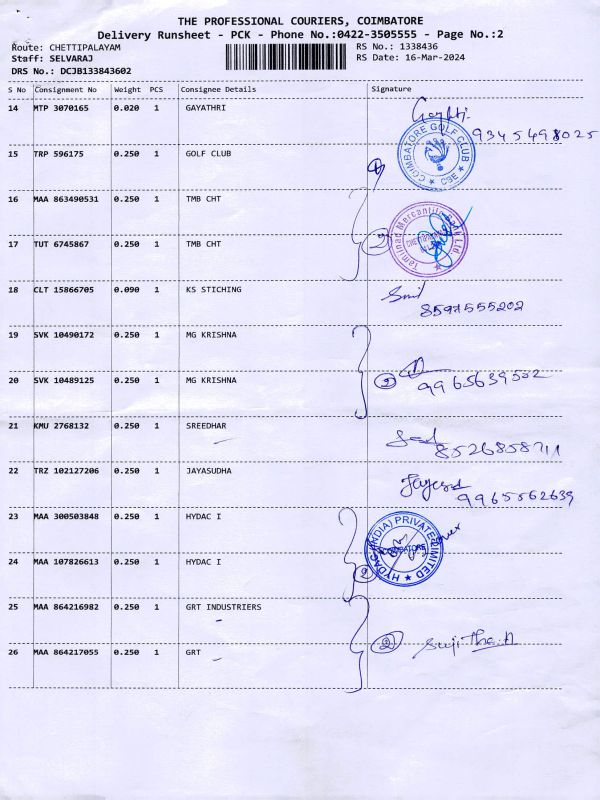 THE PROFESSIONAL COURIERS, COIMBATORE
Delivery Runsheet - PCK - Phone No.:0422-3505555 - Page No.:2
Route: CHETTIPALAYAM RS No.: 1338436
Staff: SELVARAJ RS Date: 16-Mar-2024
DRS No.: DCJB133843602
S No Consignment No Weight PCS Consignee Details Signature
14 MTP 3070165 0.020 1 GAYATHRI
9345498025
15 TRP 596175 0.250 1 GOLF CLUB COIMBATORE GOLF CLUB ★ CBE ★
16 MAA 863490531 0.250 1 TMB CHT
17 TUT 6745867 0.250 1 TMB CHT 2 Tamilnad Mercantile Bank Ltd.
18 CLT 15866705 0.090 1 KS STICHING
19 SVK 10490172 0.250 1 MG KRISHNA
20 SVK 10489125 0.250 1 MG KRISHNA 2
21 KMU 2768132 0.250 1 SREEDHAR
22 TRZ 102127206 0.250 1 JAYASUDHA
9965562639
23 MAA 300503848 0.250 1 HYDAC I
HYDAC (INDIA) PRIVATE LIMITED ★ COIMBATORE
24 MAA 107826613 0.250 1 HYDAC I 2
25 MAA 864216982 0.250 1 GRT INDUSTRIERS
26 MAA 864217055 0.250 1 GRT 2 Sujitha.A